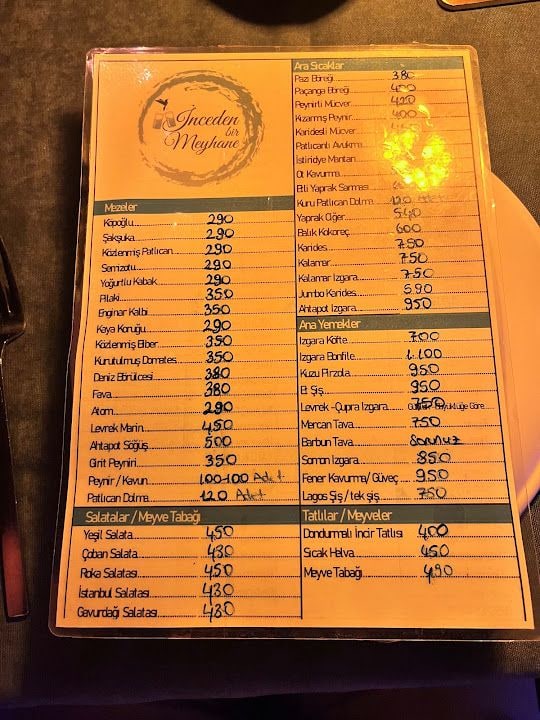 İnceden
bir
Meyhane
Mezeler
Köpoğlu 290
Şakşuka 290
Közlenmiş Patlıcan 290
Semizotu 290
Yoğurtlu Kabak 290
Pilaki 350
Enginar Kalbi 350
Kaya Koruğu 290
Közlenmiş Biber 350
Kurutulmuş Domates 350
Deniz Börülcesi 380
Fava 380
Atom 290
Levrek Marin 450
Ahtapot Söğüş 500
Girit Peyniri 350
Peynir / Kavun 100-100 Adet
Patlıcan Dolma 120 Adet
Salatalar / Meyve Tabağı
Yeşil Salata 450
Çoban Salata 430
Roka Salatası 450
İstanbul Salatası 430
Gavurdağı Salatası 430
Ara Sıcaklar
Pazı Böreği 380
Paçanga Böreği 400
Peynirli Mücver 420
Kızarmış Peynir 400
Karidesli Mücver
Patlıcanlı Avukma
İstiridye Mantarı
Ot Kavurma
Etli Yaprak Sarması
Kuru Patlıcan Dolma 120 Adet
Yaprak Ciğer 540
Balık Kokoreç 600
Karides 750
Kalamar 750
Kalamar Izgara 750
Jumbo Karides 590
Ahtapot Izgara 950
Ana Yemekler
Izgara Köfte 700
Izgara Bonfile 1.100
Kuzu Pirzola 950
Et Şiş 950
Levrek -Çupra Izgara 750 Büyüklüğe Göre
Mercan Tava 750
Barbun Tava Sorunuz
Somon Izgara 850
Fener Kavurma/ Güveç 950
Lagos Şiş / tek şiş 750
Tatlılar / Meyveler
Dondurmalı İncir Tatlısı 400
Sıcak Helva 450
Meyve Tabağı 490